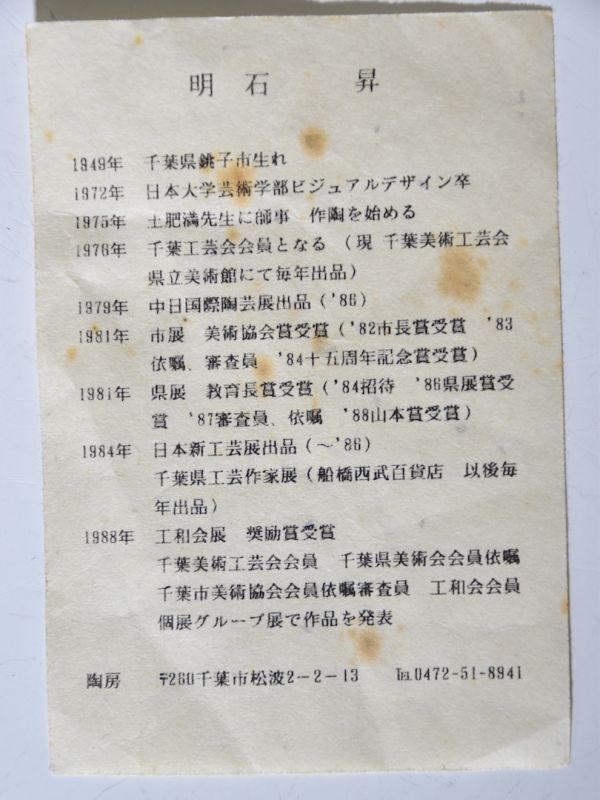 明石　昇
1949年　千葉県銚子市生れ
1972年　日本大学芸術学部ビジュアルデザイン卒
1975年　土肥満先生に師事　作陶を始める
1976年　千葉工芸会会員となる（現 千葉美術工芸会
県立美術館にて毎年出品）
1979年　中日国際陶芸展出品（'86）
1981年　市展　美術協会賞受賞（'82市長賞受賞　'83
依嘱、審査員　'84十五周年記念賞受賞）
1981年　県展　教育長賞受賞（'84招待　'86県展賞受
賞　'87審査員、依嘱　'88山本賞受賞）
1984年　日本新工芸展出品（～'86）
千葉県工芸作家展（船橋西武百貨店　以後毎
年出品）
1988年　工和会展　奨励賞受賞
千葉美術工芸会会員　千葉県美術会会員依嘱
千葉市美術協会会員依嘱審査員　工和会会員
個展グループ展で作品を発表
陶房　〒260千葉市松波2－2－13　℡0472-51-8941